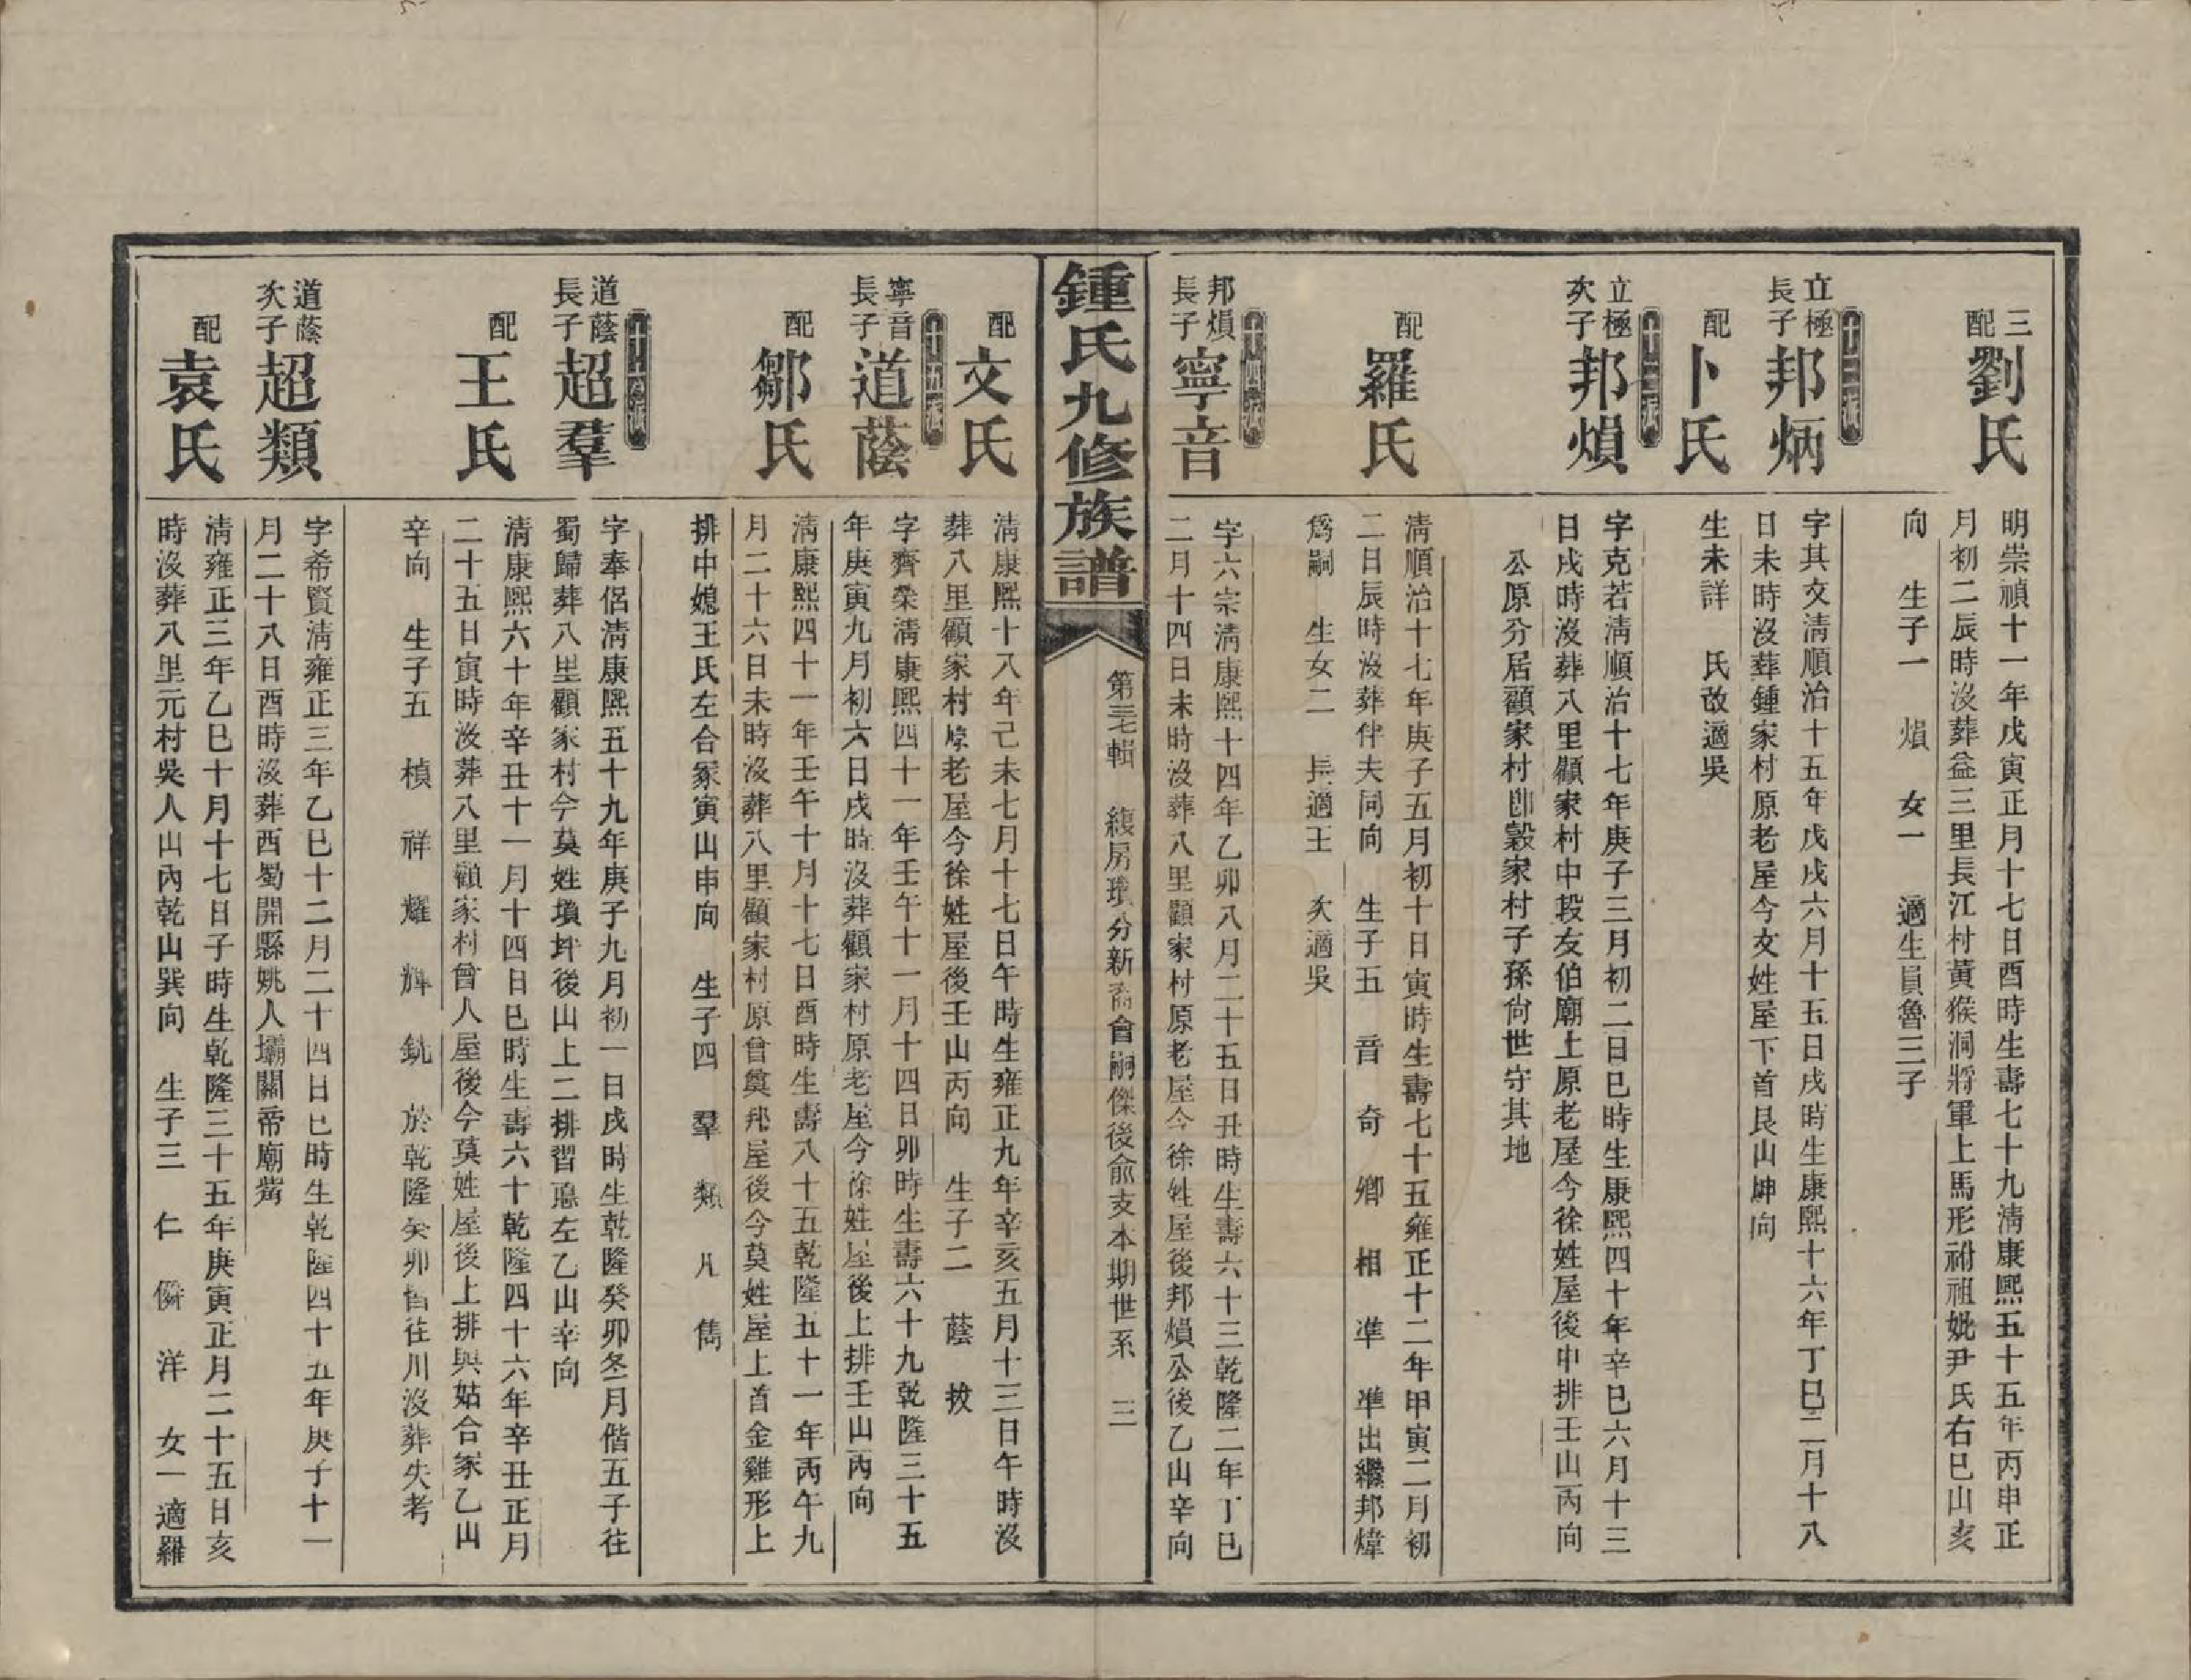 三配劉氏
明崇禎十一年戊寅正月十七日酉時生壽七十九清康熙五十五年丙申正
月初二辰時沒葬益三里長江村黃猴洞將軍上馬形祔祖妣尹氏右巳山亥
向 生子一 熉 女一 適生員魯三子
十三派
立極長子邦炳
字其文清順治十五年戊戌六月十五日戌時生康熙十六年丁巳二月十八
日未時沒葬鍾家村原老屋今文姓屋下首艮山坤向
配卜氏
生未詳 氏改適吳
十三派
立極次子邦熉
字克若清順治十七年庚子三月初二日巳時生康熙四十年辛巳六月十三
日戌時沒葬八里顧家村中段友伯廟上原老屋今徐姓屋後中排壬山丙向
公原分居顧家村卽穀家村子孫尙世守其地
配羅氏
清順治十七年庚子五月初十日寅時生壽七十五雍正十二年甲寅二月初
二日辰時沒葬伴夫同向 生子五 音 奇 鄉 相 準 準出繼邦煒
爲嗣 生女二 長適王 次適吳
十四派
邦熉長子寧音
字六宗清康熙十四年乙卯八月二十五日丑時生壽六十三乾隆二年丁巳
二月十四日未時沒葬八里顧家村原老屋今徐姓屋後邦熉公後乙山辛向
鍾氏九修族譜
第三七輯 復房璝分新喬會嗣傑後俞支本期世系 三
配文氏
清康熙十八年己未七月十七日午時生雍正九年辛亥五月十三日午時沒
葬八里顧家村原老屋今徐姓屋後壬山丙向 生子二 蔭 敉
十五派
寧音長子道蔭
字齊榮清康熙四十一年壬午十一月十四日卯時生壽六十九乾隆三十五
年庚寅九月初六日戌時沒葬顧家村原老屋今徐姓屋後上排壬山丙向
配鄒氏
清康熙四十一年壬午十月十七日酉時生壽八十五乾隆五十一年丙午九
月二十六日未時沒葬八里顧家村原曾奠邦屋後今莫姓屋上首金雞形上
排中媳王氏左合冢寅山申向 生子四 羣 類 凡 雋
十六派
道蔭長子超羣
字奉侶清康熙五十九年庚子九月初一日戌時生乾隆癸卯冬月偕五子往
蜀歸葬八里顧家村今莫姓墳坪後山上二排習聽左乙山辛向
配王氏
清康熙六十年辛丑十一月十四日巳時生壽六十乾隆四十六年辛丑正月
二十五日寅時沒葬八里顧家村曾人屋後今莫姓屋後上排與姑合冢乙山
辛向 生子五 楨 祥 耀 輝 銃 於乾隆癸卯偕往川沒葬失考
道蔭次子超類
字希賢清雍正三年乙巳十二月二十四日巳時生乾隆四十五年庚子十一
月二十八日酉時沒葬西蜀開縣姚人壩關帝廟嵩
配袁氏
清雍正三年乙巳十月十七日子時生乾隆三十五年庚寅正月二十五日亥
時沒葬八里元村吳人山內乾山巽向 生子三 仁 僯 洋 女一適羅